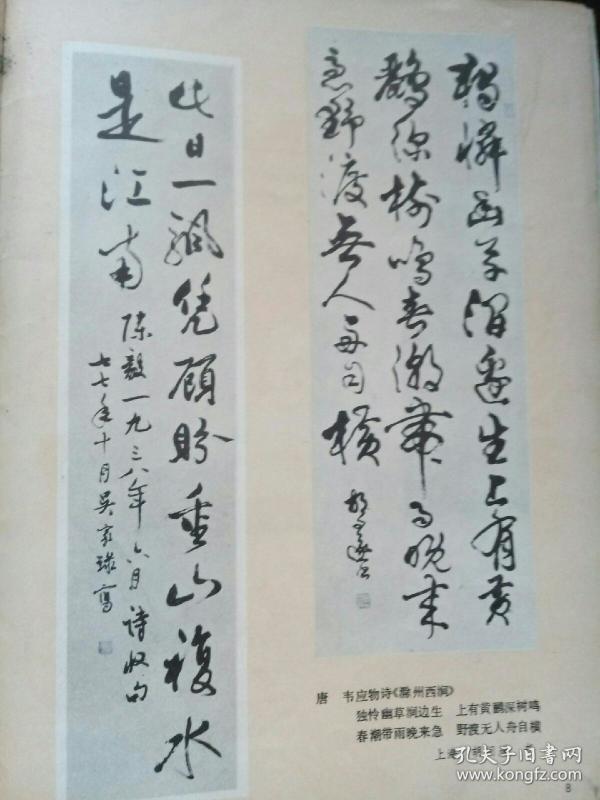 獨憐幽草澗邊生上有黄
鸝深樹鳴春潮帶雨晚來
急野渡無人舟自横
此日一颿凭顧盼重山複水
是江南
陳毅一九三八年六月詩收句
七七年十月吴家琭寫
唐 韦应物诗《滁州西涧》
独怜幽草涧边生 上有黄鹂深树鸣
春潮带雨晚来急 野渡无人舟自横
上海
8
孔夫子旧书网
www.kongfz.com